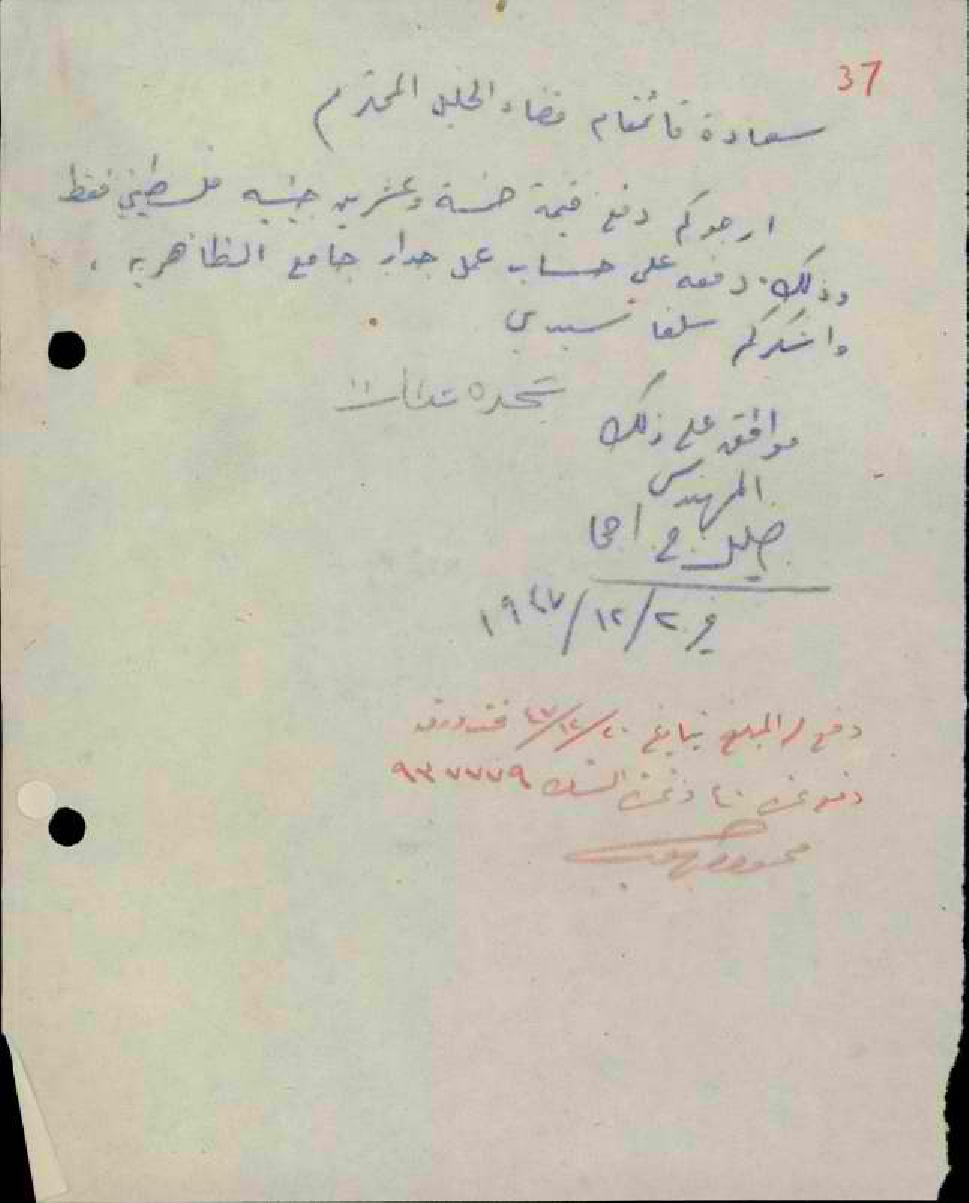 37
سعادة قائمقام قضاء الخليل المحترم
ارجوكم دفع قيمة خمسة وعشرين جنيه فلسطيني فقط
وذلك دفعه على حساب عمل جدار جامع الظاهريه .
واشكركم سلفا سيدي
موافق على ذلك
المهندس
خليل
في ٢٠/١٢/١٩٤٧
دفع له المبلغ بتاريخ ٢٠/١٢/٤٧
الشك ٩٣٧٧٧٩